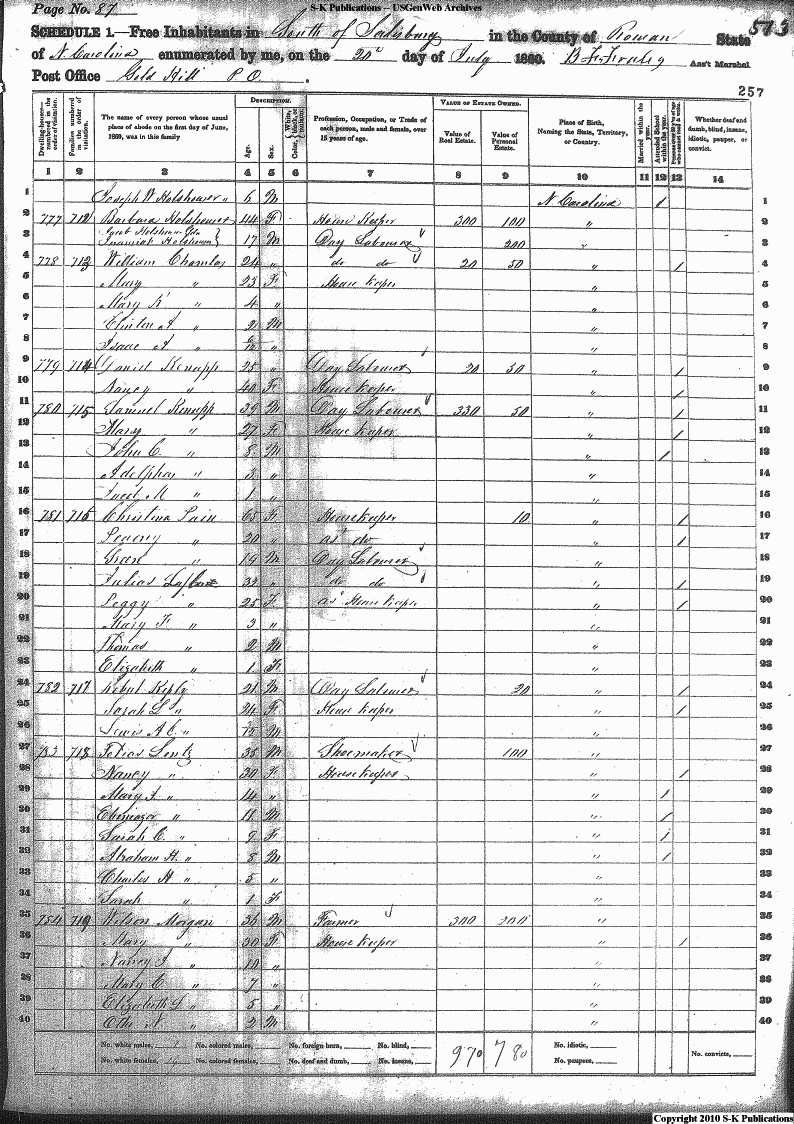 Page No. 87
S-K Publications – USGenWeb Archives
573
SCHEDULE 1.—Free Inhabitants in South of Salisbury in the County of Rowan State
of N. Carolina enumerated by me, on the 20th day of July 1860. Ass't Marshal
Post Office Gold Hill P.O.
257
Dwelling-houses—numbered in the order of visitation.
Families numbered in the order of visitation.
The name of every person whose usual place of abode on the first day of June, 1860, was in this family
DESCRIPTION.
Age.
Sex.
Color,
Profession, Occupation, or Trade of each person, male and female, over 15 years of age.
VALUE OF ESTATE OWNED.
Value of Real Estate.
Value of Personal Estate.
Place of Birth, Naming the State, Territory, or Country.
Married within the year.
Attended School within the year.
Whether deaf and dumb, blind, insane, idiotic, pauper, or convict.
1 2 3 4 5 6 7 8 9 10 11 12 13 14
1 Joseph W. Holshouser 6 M N Carolina / 1
2 777 712 Barbara Holshouser 44 F House Keeper 300 100 " 2
3 17 M Day Labourer 200 " 3
4 778 713 William 24 " do do 20 50 " / 4
5 Mary " 23 F House Keeper " 5
6 Mary " 4 " " 6
7 Clinton A " 2 M " 7
8 Isaac A " " " 8
9 779 714 Daniel Kenupp 25 " Day Labourer 20 50 " / 9
10 Nancy " 40 F House Keeper " / 10
11 780 715 Samuel Kenupp 39 M Day Labourer 330 50 " / 11
12 Mary " 27 F House Keeper " / 12
13 John C. " 8 M " / 13
14 " 3 " " 14
15 M " 1 " " 15
16 781 716 Christina 65 F House Keeper 10 " / 16
17 " 20 " as do " / 17
18 " 19 M Day Labourer " 18
19 Julius 33 " do do " / 19
20 Peggy " 25 F as House Keeper " / 20
21 Mary F " 3 " " 21
22 Thomas " 2 M " 22
23 Elizabeth " 1 F " 23
24 782 717 21 M Day Labourer 20 " / 24
25 Sarah L " 24 F House Keeper " / 25
26 Lewis A C. " M " 26
27 783 718 Tobias Lentz 35 M Shoemaker 100 " 27
28 Nancy " 30 F House Keeper " / 28
29 Mary " 14 " " / 29
30 Ebenezer " 11 M " / 30
31 Sarah C. " 9 F " / 31
32 Abraham H. " 8 M " / 32
33 Charles A " 5 " " 33
34 Sarah " 1 F " 34
35 784 719 Wilson Morgan 36 M Farmer 300 200 " 35
36 Mary " 30 F House Keeper " / 36
37 Nancy " 10 " " 37
38 Mary C " 7 " " 38
39 Elizabeth " 5 " " 39
40 Otho N. " 2 M " 40
No. white males, No. colored males, No. foreign born, No. blind, 970 780 No. idiotic,
No. white females, No. colored females, No. deaf and dumb, No. insane, No. paupers, No. convicts,
Copyright 2010 S-K Publications